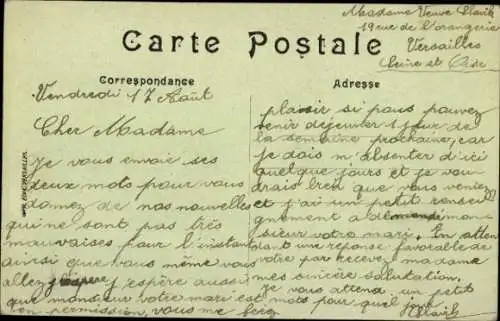 Madame Veuve Slavik
19 rue de l'orangerie
Versailles
Seine et Oise
Carte Postale
Correspondance
Adresse
Vendredi 17 Août
Cher Madame
Je vous envoie ses
deux mots pour vous
donnez de nos nouvelles
qui ne sont pas très
mauvaises pour l'instant
ainsi que vous même vous
allez j'espère j'espère aussi
que monsieur votre mari est
en permission, vous me ferez
plaisir si vous pouvez
venir déjeuner 1 jour de
la semaine prochaine, car
je dois m'absenter d'ici
quelque jours et je vou
drais bien que vous veniez
et j'ai un petit renseil
gnement a demande mon
sieur votre mari. En atten
dant une réponse favorable de
votre par recevez madame
mes sincère salutation.
Je vous attend, un petit
mots pour quel jour.
Slavik